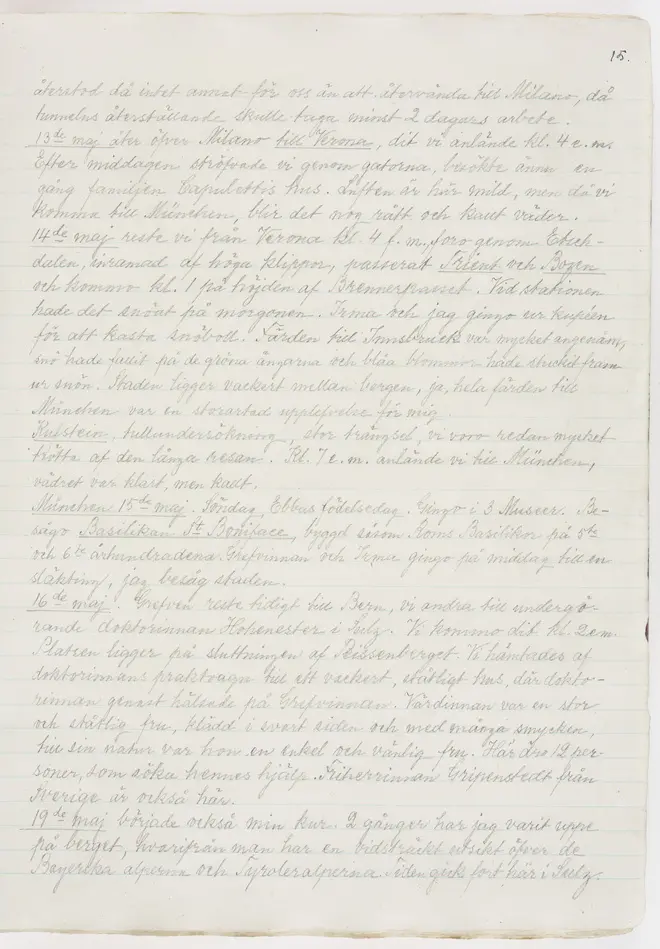 15.
återstod då intet annat för oss än att återvända till Milano, då
tunnelns återställande skulle taga minst 2 dagars arbete.
13de maj åter öfver Milano till Verona, dit vi anlände kl. 4 e.m.
Efter middagen ströfvade vi genom gatorna, besökte ännu en
gång familjen Capulettis hus. Luften är här mild, men då vi
komma till München, blir det nog rått och kallt väder.
14de maj reste vi från Verona kl. 4 f.m., foro genom Etsch-
dalen, inramad af höga klippor, passerat Trient och Bozen
och kommo kl. 1 på höjden af Brennerpasset. Vid stationen
hade det snöat på morgonen. Irma och jag gingo ur kupéen
för att kasta snöboll. Färden till Innsbruck var mycket angenäm,
snö hade fallit på de gröna ängarna och blåa blommor hade stuckit fram
ur snön. Staden ligger vackert mellan bergen, ja, hela färden till
München var en storartad upplefvelse för mig.
Kufstein, tullundersökning, stor trängsel, vi voro redan mycket
trötta af den långa resan. Kl. 7 e.m. anlände vi till München,
vädret var klart, men kallt.
München 15de maj. Söndag, Ebbas födelsedag. Gingo i 3 Museer. Be-
sågo Basilikan St Boniface, byggd såsom Roms Basilikor på 5te
och 6te århundradena. Grefvinnan och Irma gingo på middag till en
släkting, jag besåg staden.
16de maj. Grefven reste tidigt till Bern, vi andra till undergö-
rande doktorinnan Hohenester i Sulz. Vi kommo dit kl. 2 e.m.
Platsen ligger på sluttningen af Peissenberget. Vi hämtades af
doktorinnans praktvagn till ett vackert, ståtligt hus, där dokto-
rinnan genast hälsade på Grefvinnan. Värdinnan var en stor
och ståtlig fru, klädd i svart siden och med många smycken,
till sin natur var hon en enkel och vänlig fru. Här äro 12 per-
soner, som söka hennes hjälp. Friherrinnan Gripenstedt från
Sverige är också här.
19de maj började också min kur. 2 gånger har jag varit uppe
på berget, hvarifrån man har en vidsträckt utsikt öfver de
Bayerska alperna och Tyroleralperna. Tiden gick fort här i Sulz.